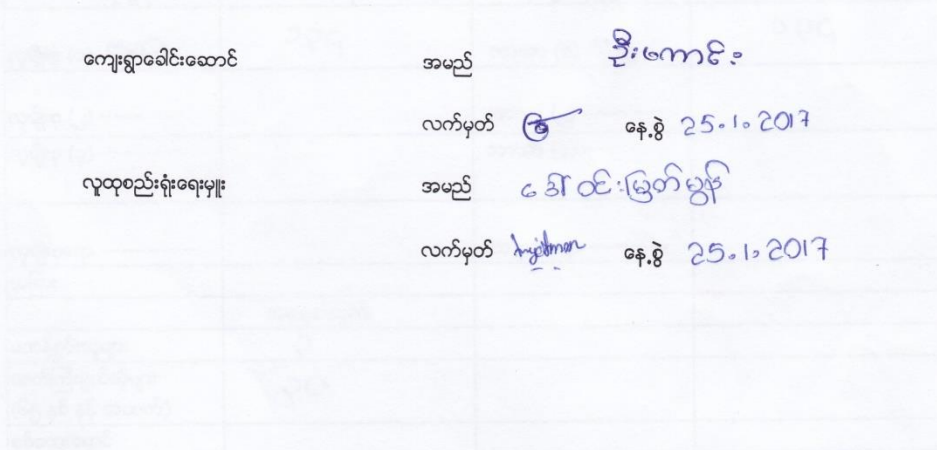 ကျေးရွာခေါင်းဆောင် အမည် ဦးဖကောင်း
လက်မှတ် နေ့စွဲ 25.1.2017
လူထုစည်းရုံးရေးမှူး အမည် ဒေါ်ဝင်းမြတ်မွန်
လက်မှတ် နေ့စွဲ 25.1.2017